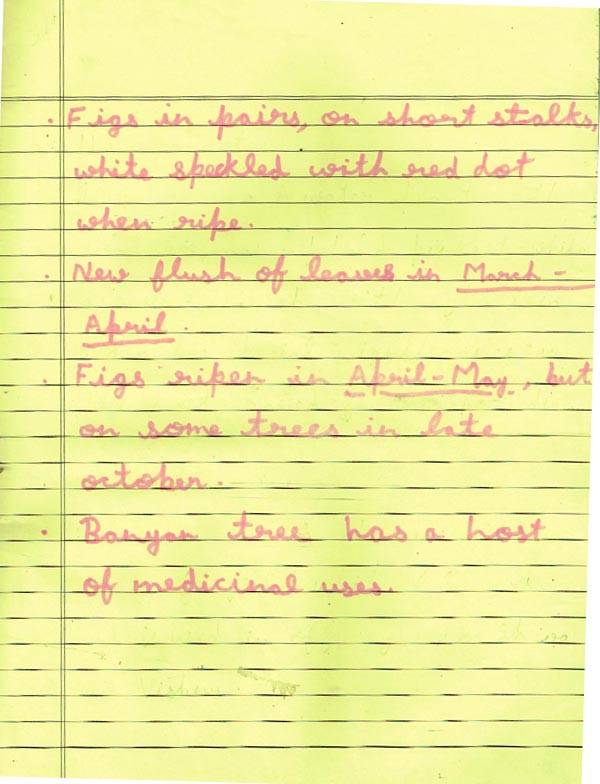 . Figs in pairs, on short stalks,
white speckled with red dot
when ripe.
. New flush of leaves in March -
April.
. Figs ripen in April - May, but
on some trees in late
october.
. Banyan tree has a host
of medicinal uses.